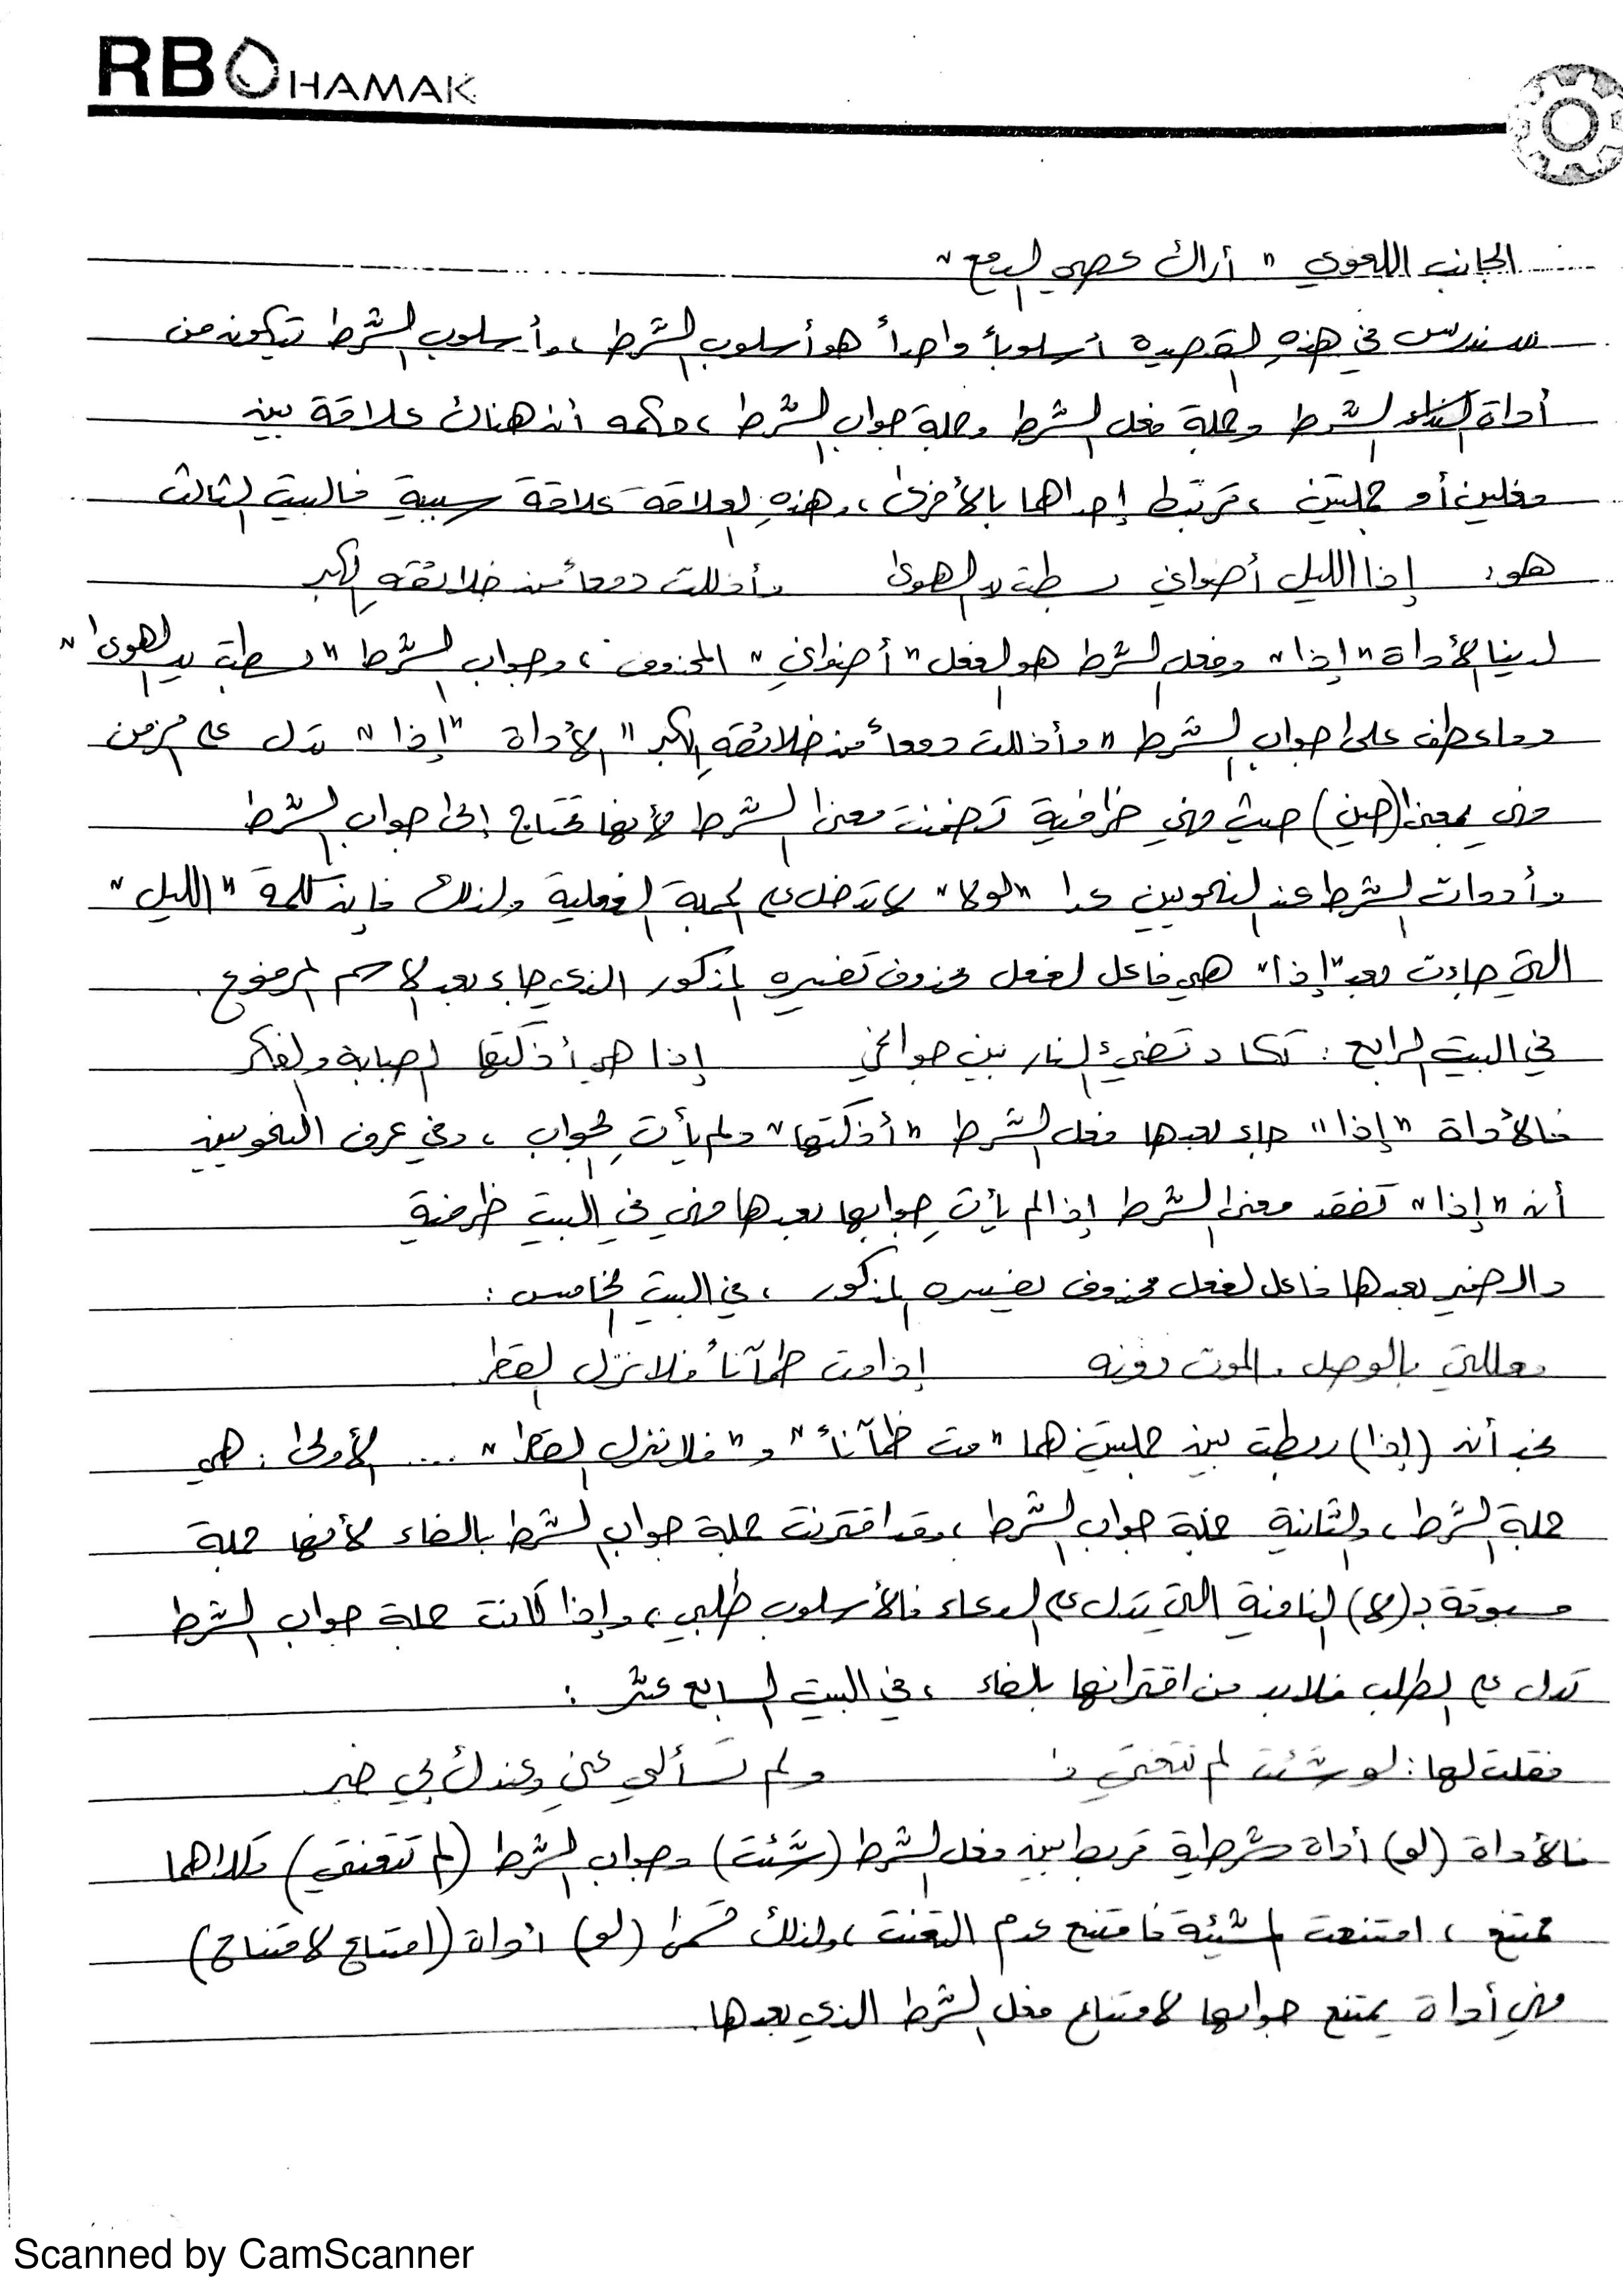 RBOHAMAK
الجانب اللغوي " أراك عصي الدمع "
سندرس في هذهِ القصيدة أسلوباً واحداً هو أسلوب الشرط ، وأسلوب الشرط تتكون من
أداة الشرط وجملة فعل الشرط وجملة جواب الشرط ، حكمه أن هناك علاقة بين
فعلين أو جملتين ، ترتبط إحداها بالأخرى ، وهذهِ العلاقة علاقة سببية فالبيت الثالث
هو : إذا الليل أضواني بسطت يد الهوى وأذللت دمعاً من خلائقهِ الكبر
لدينا الأداة " إذا " وفعل الشرط هو الفعل " أضواني " المحذوف ، وجواب الشرط " بسطت يد الهوى "
وما عطف على جواب الشرط " وأذللت دمعاً من خلائقهِ الكبر " الأداة " إذا " تدل على الزمن
وهي بمعنى (حين) حيث وهي ظرفية تضمنت معنى الشرط لأنها تحتاج إلى جواب الشرط
وأدوات الشرط عند النحويين عدا " لولا " لا تدخل على الجملة الفعلية ولذلك فإن كلمة " الليل "
التي جاءت بعد " إذا " هي فاعل لفعل محذوف تفسيره المذكور الذي جاء بعد الاسم المرفوع .
في البيت الرابع : تكاد تضيء النار بين جوانحي إذا هي أذكتها الصبابة والفكر
فالأداة " إذا " جاء بعدها فعل الشرط " أذكتها " ولم يأتِ الجواب ، وفي عرف النحويين
أن " إذا " تفقد معنى الشرط إذا لم يأتِ جوابها بعدها فهي في البيت ظرفية
والضمير بعدها فاعل لفعل محذوف يفسره المذكور ، في البيت الخامس :
معللتي بالوصل والموت دونه إذا مت ظمآناً فلا نزل القطر
نجد أن (إذا) ربطت بين جملتين هما " مت ظمآناً " و " فلا نزل القطر " .... الأولى : هي
جملة الشرط ، والثانية جملة جواب الشرط ، وقد اقترنت جملة جواب الشرط بالفاء لأنها جملة
مسبوقة بـ (لا) النافية التي تدل على الدعاء فالأسلوب طلبي ، وإذا كانت جملة جواب الشرط
تدل على الطلب فلابد من اقترانها بالفاء ، في البيت السابع عشر :
فقلت لها : لو شئت لم تتعنتي ولم تسألي عني وعندك بي خبر
فالأداة (لو) أداة شرطية تربط بين فعل الشرط (شئت) وجواب الشرط (لم تتعنتي) وكلاهما
ممتنع ، امتنعت المشيئة فامتنع عدم التعنت ، ولذلك تسمى (لو) أداة (امتناع لامتناع)
فهي أداة يمتنع جوابها لامتناع فعل الشرط الذي بعدها .
Scanned by CamScanner